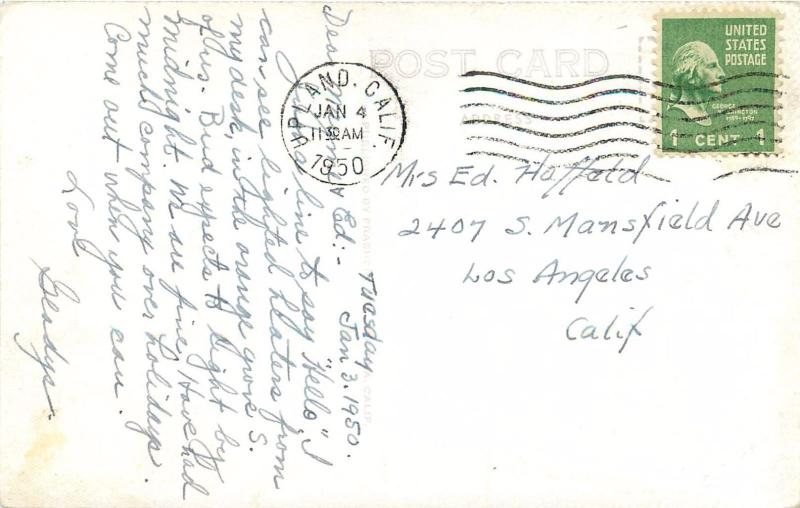 POST CARD
ADDRESS
UPLAND, CALIF.
JAN 4
11 30 AM
1950
UNITED
STATES
POSTAGE
GEORGE
WASHINGTON
1789-1797
1 CENT 1
Mrs Ed. Hatfield
2407 S. Mansfield Ave
Los Angeles
Calif
Tuesday
Jan 3. 1950.
Dear Ed:-
Just a line to say "Hello". I
can see lighted heaters from
my desk in the orange grove S.
of us. Bud expects to light by
midnight. We are fine. Have had
much company over holidays.
Come out when you can.
Love
Gladys